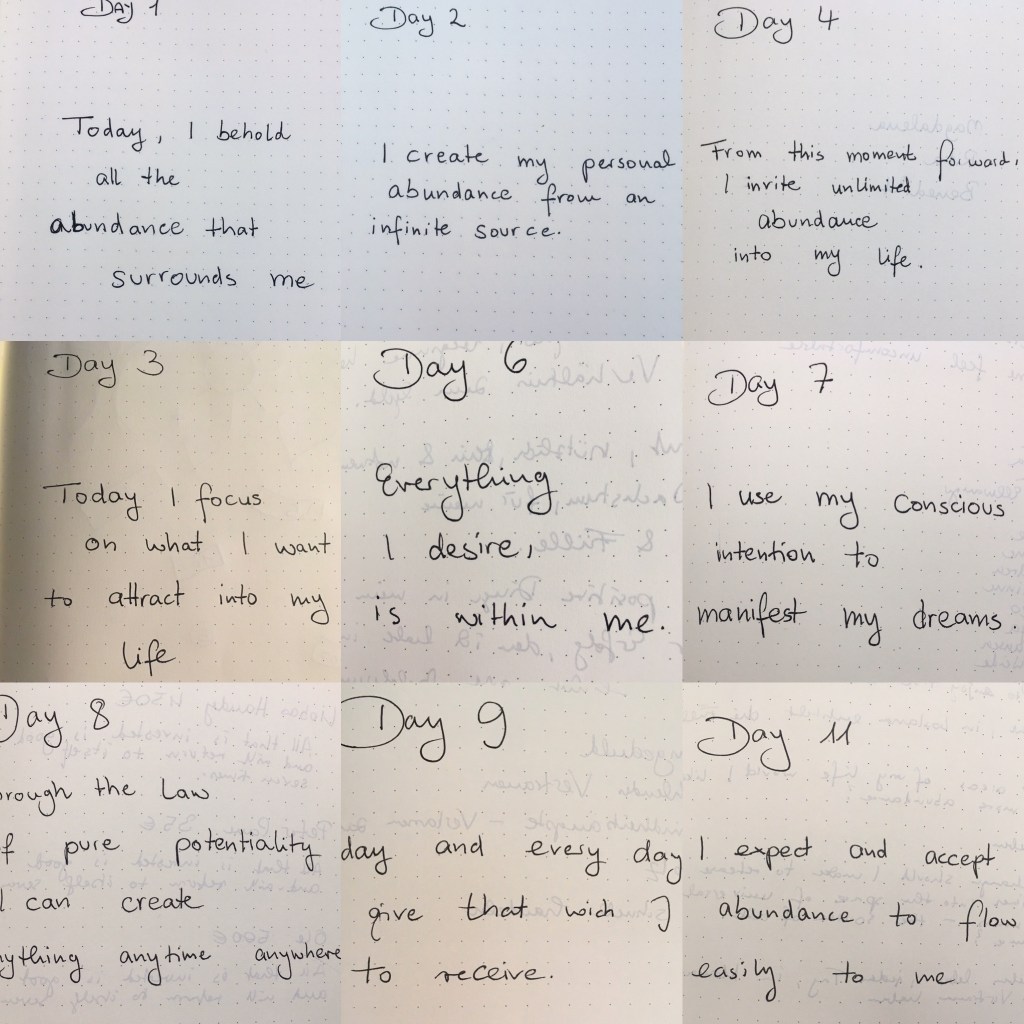 Day 1
Today, I behold
all the
abundance that
surrounds me
Day 2
I create my personal
abundance from an
infinite source.
Day 4
From this moment forward,
I invite unlimited
abundance
into my life.
Day 3
Today I focus
on what I want
to attract into my
life
Day 6
Everything
I desire,
is within me.
Day 7
I use my conscious
intention to
manifest my dreams.
Day 8
rough the Law
f pure potentiality
I can create
ything anytime anywhere
Day 9
day and every day
give that wich I
to receive.
Day 11
I expect and accept
abundance to flow
easily to me